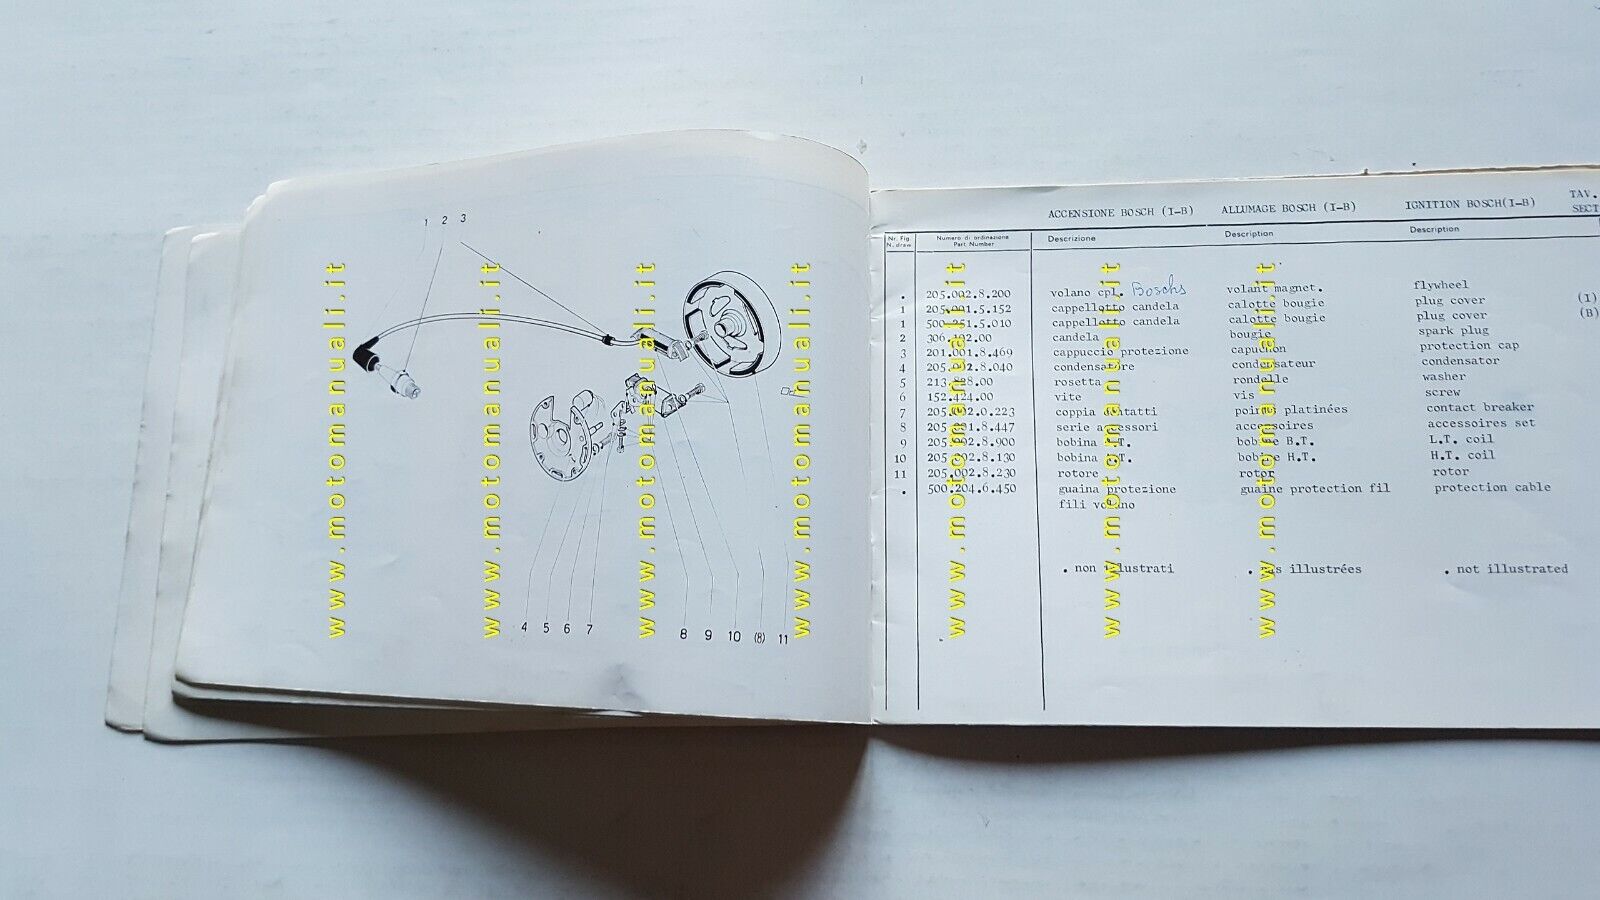 1 2 3
4 5 6 7 8 9 10 (8) 11
www.motomanuali.it
www.motomanuali.it
www.motomanuali.it
www.motomanuali.it
ACCENSIONE BOSCH (I-B) ALLUMAGE BOSCH (I-B) IGNITION BOSCH(I-B) TAV.
SECT
Nr. Fig. Numero di ordinazione Descrizione Description Description
N. draw Part Number
. 205.002.8.200 volano cpl. Boschs volant magnet. flywheel
1 205.001.5.152 cappellotto candela calotte bougie plug cover (I)
1 500.251.5.010 cappellotto candela calotte bougie plug cover (B)
2 306.192.00 candela bougie spark plug
3 201.001.8.469 cappuccio protezione capuchon protection cap
4 205.002.8.040 condensatore condensateur condensator
5 213.828.00 rosetta rondelle washer
6 152.424.00 vite vis screw
7 205.002.0.223 coppia contatti pointes platinées contact breaker
8 205.001.8.447 serie accessori accessoires accessoires set
9 205.002.8.900 bobina B.T. bobine B.T. L.T. coil
10 205.002.8.130 bobina H.T. bobine H.T. H.T. coil
11 205.002.8.230 rotore rotor rotor
. 500.204.6.450 guaina protezione guaine protection fil protection cable
fili volano
. non illustrati . pas illustrées . not illustrated
www.motomanuali.it
www.motomanuali.it
www.motomanuali.it